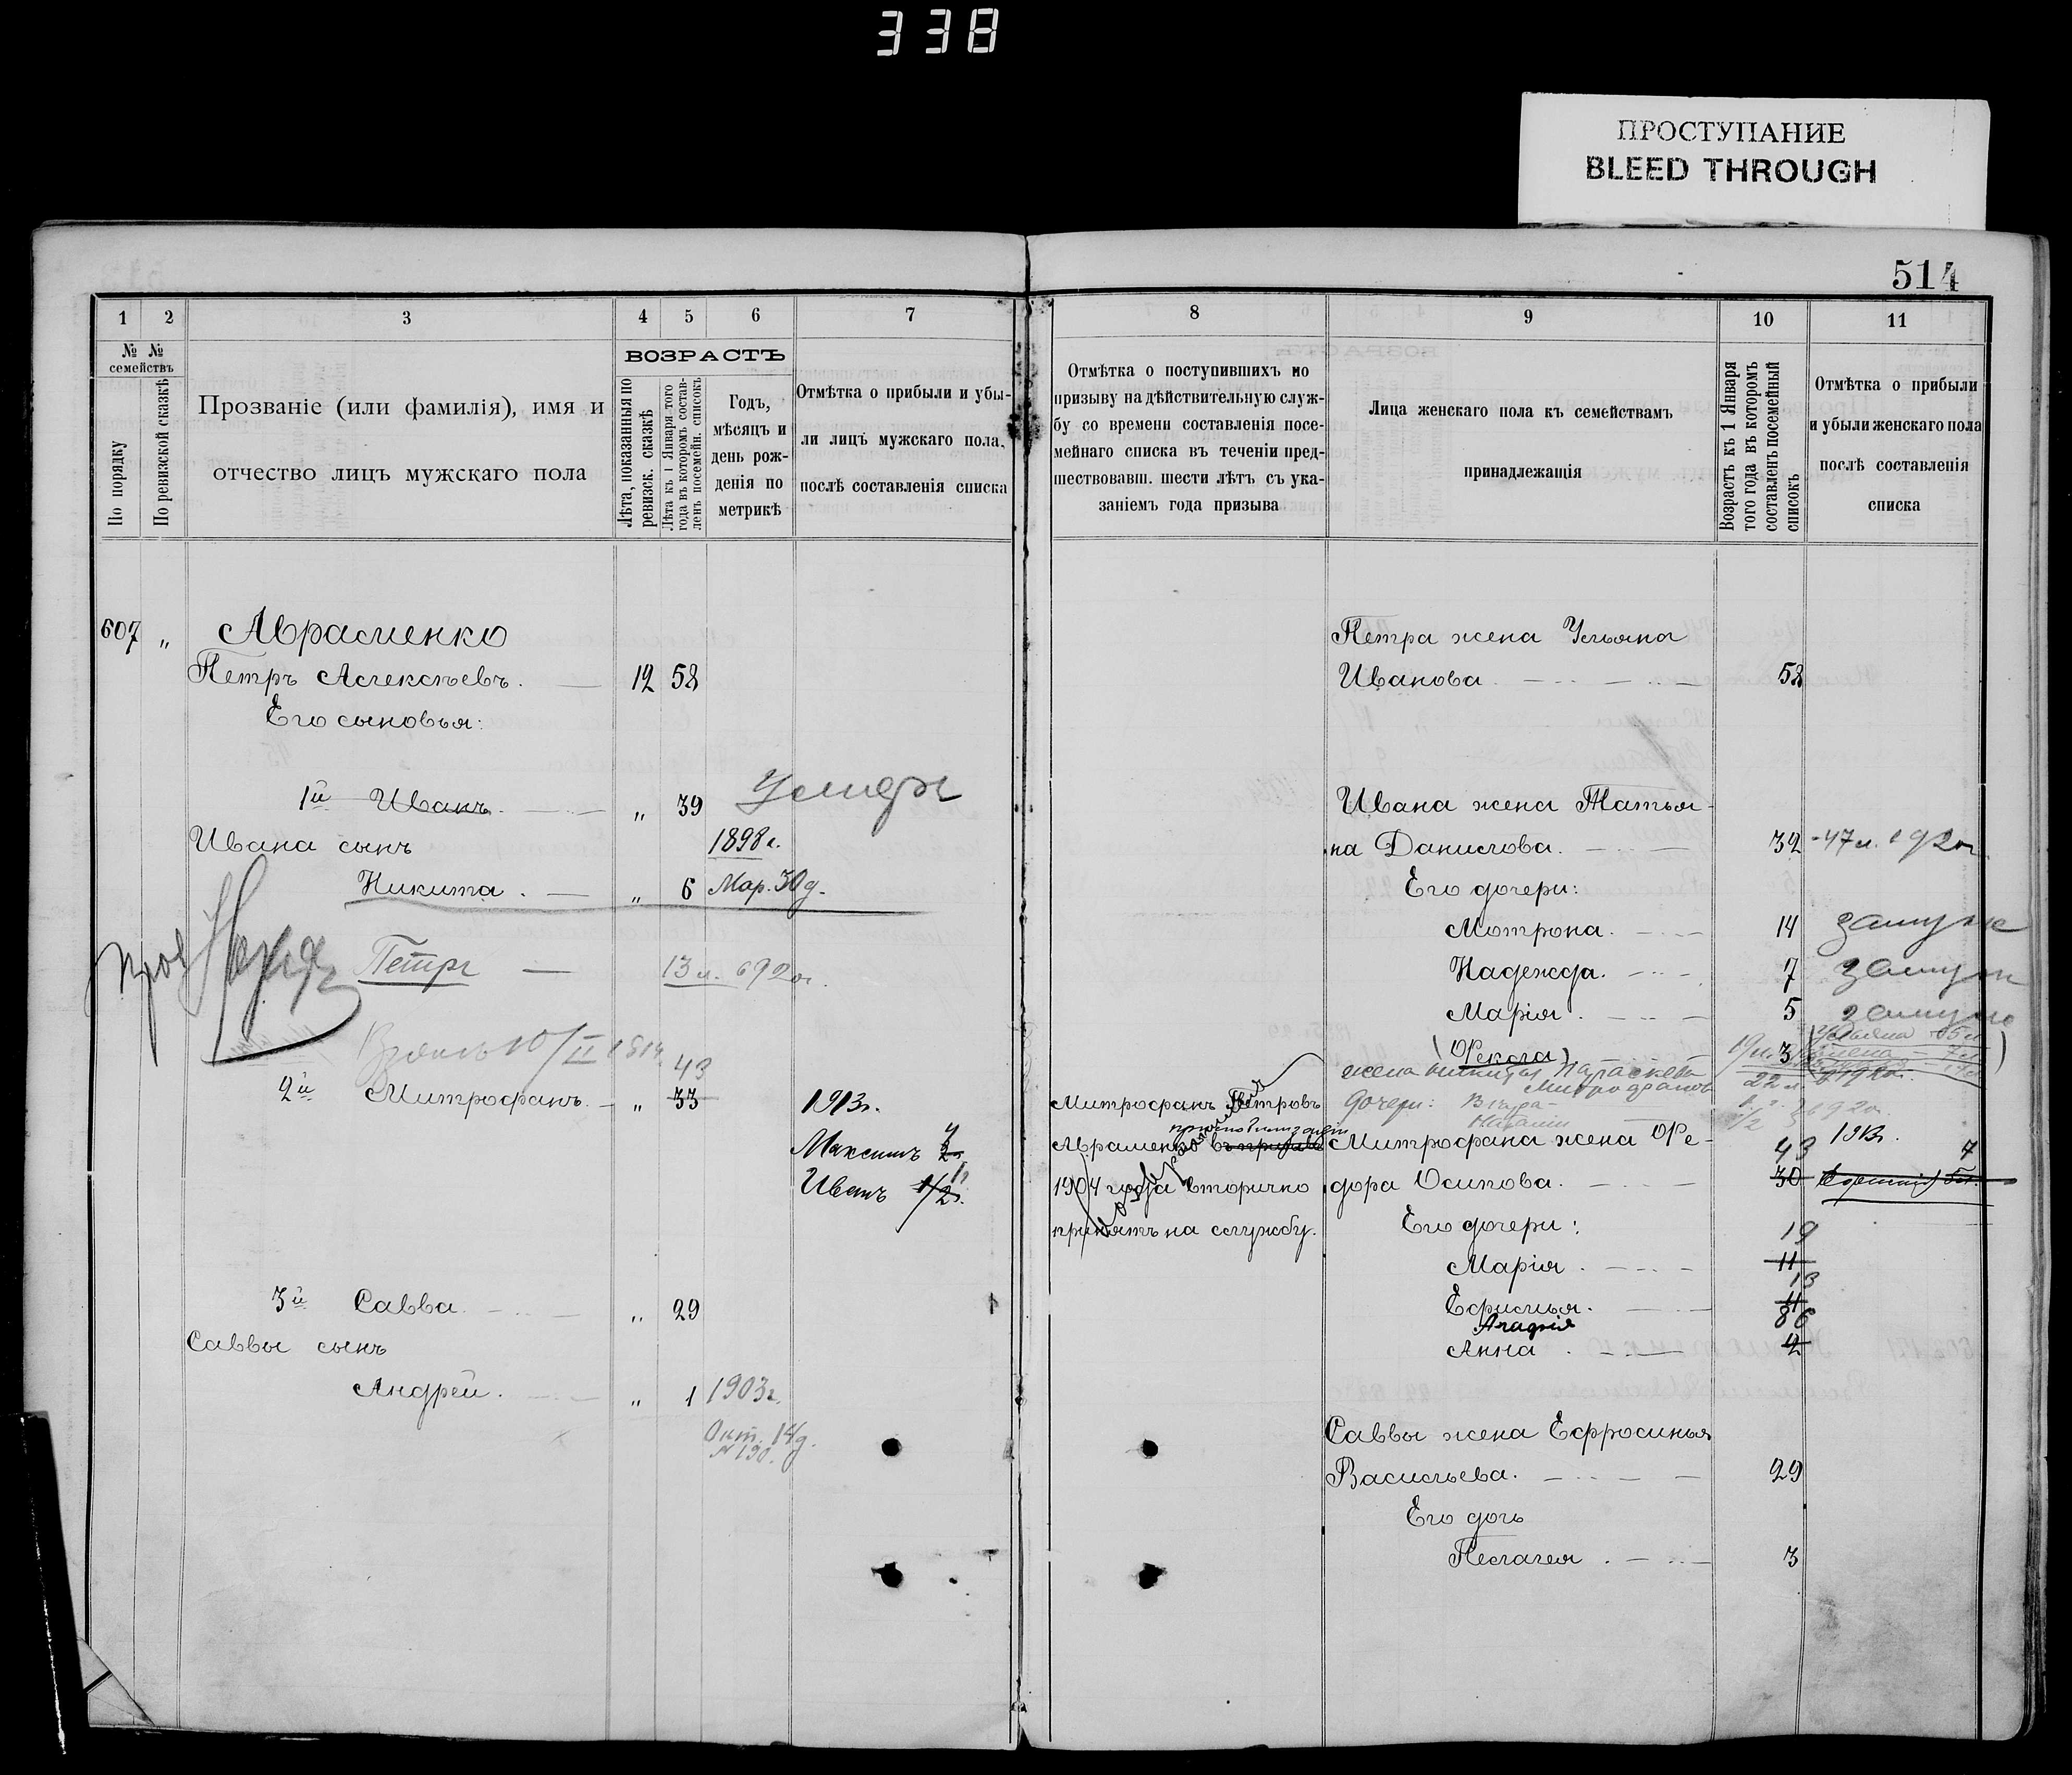 338
ПРОСТУПАНИЕ
BLEED THROUGH
514
1 2 3 4 5 6 7
№ № семействъ
По порядку
По ревизской сказкѣ
Прозваніе (или фамилія), имя и
отчество лицъ мужскаго пола
ВОЗРАСТЪ
Лѣта, показанныя по ревизск. сказкѣ
Лѣта къ 1 Января того года въ которомъ составленъ посемейн. списокъ
Годъ,
мѣсяцъ и
день рож-
денія по
метрикѣ
Отмѣтка о прибыли и убы-
ли лицъ мужскаго пола,
послѣ составленія списка
607 „ Авраменко
Петръ Алексѣевъ. 12 58
Его сыновья:
1й Иванъ. „ 39 Умеръ
Ивана сынъ 1898 г.
Никита. „ 6 Мар. 30 д.
Петръ — 13 л. 1920 г.
2й Митрофанъ. „ 33 43 1913 г.
Максимъ
Иванъ 1/2 г.
3й Савва. „ 29
Саввы сынъ
Андрей. „ 1 1903 г.
Окт. 14 д.
№ 190.
8 9 10 11
Отмѣтка о поступившихъ по
призыву на дѣйствительную служ-
бу со времени составленія посе-
мейнаго списка въ теченіи пред-
шествовавш. шести лѣтъ съ ука-
заніемъ года призыва
Лица женскаго пола къ семействамъ
принадлежащія
Возрастъ къ 1 Января
того года въ которомъ
составленъ посемейный
списокъ
Отмѣтка о прибыли
и убыли женскаго пола
послѣ составленія
списка
Петра жена Ульяна
Иванова 58
Ивана жена Татья-
на Данилова. 32 - 47 л. 1920 г.
Его дочери:
Мотрона. 14 замуж
Надежда. 7 замуж
Марія. 5 замуж
(Ѳекла) 3
жена Никиты Параскева
Митрофанов 22 л.
дочери:
Митрофанъ Петровъ
Авраменко въ призывъ
1904 года вторично
принятъ на службу.
Митрофана жена Ѳе- 43 1913 г.
дора Осипова. 30
Его дочери: 19
Марія. 11
13
Ефимья.
Агафія 8 6
Анна. 2
Саввы жена Ефросинья
Васильева. 29
Его дочь
Пелагея. 3